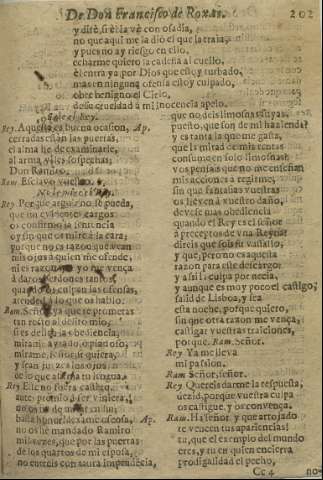 De Don Francisco de Roxas. 202
y dirè, si èl la vè con osadia,
no que aqui me la diò el que la traìa,
y pues no ay riesgo en ello,
echarme quiero la cadena al cuello,
èl entra ya por Dios que estoy turbado,
mas en ninguna ofensa estoy culpado,
obre benigno el Cielo,
desta crueldad à mi inocencia apelo.
Sale el Rey.
Rey. Aquesta es buena ocasion, Ap.
cerradas estàn las puertas,
el alma he de examinarle,
al arma viles sospechas;
Don Ramiro.
Ram. Esclavo vuestro.
Rey. Porque arguirno se pueda,
que no
ò confirmò la sentencia
y sin que os mire à la cara,
porque no es razon que vean
mis ojos à quien me ofende,
ni es razon que yo me vença
à daros perdones tantos,
quando os culpan las ofensas,
atended à lo que os hablo.
Ram. Señor, ya que te prometas
tan recto al delito mio,
si es delito la obediencia,
mirame ayrado, ò piadoso,
mirame, señor, si quiera,
y sean jueces los ojos
de lo que afirma tu lengua.
Rey. Ele no fuera castigo,
ante premio
no os he de
basta honor, de
no os he mandado Ramiro
mil vezes, que por las puertas
de los quartos de mi esposa,
no entreis con tanta imprudencia,
que no deis limosnas suyas,
puesto, que son de mi hazienda?
y es tanta la que me gasta,
que la mitad de mis rentas
consume en solo limosnas?
vos pensais que no me enseñan
mis acciones à regirme,
sin que fantasias vuestras
os lleven à vuestro daño,
deveis mas obediencia
quando el Rey es el señor
à preceptos de una Reyna?
direis que sois su vassallo,
y que, pero no es aquesta
razon para este descargo:
y assi la culpa por necia,
y aunque es muy poco el castigo,
salid de Lisboa, y sea
esta noche, porque quiero,
sin que otra razon me vença,
castigar vuestras traiciones,
porque. Ram. Señor.
Rey Ya me lleva
mi passion.
Ram. Señor, señor.
Rey Quereis darme la respuesta,
dezid, porque vuestra culpa
os castigue, y os convença.
Ram. Ha señor, y que arrojado
te vencen tus apariencias!
tu, que el exemplo del mundo
eres, y tu en quien encierra
prodigalidad el pecho,
Cc 4 no-